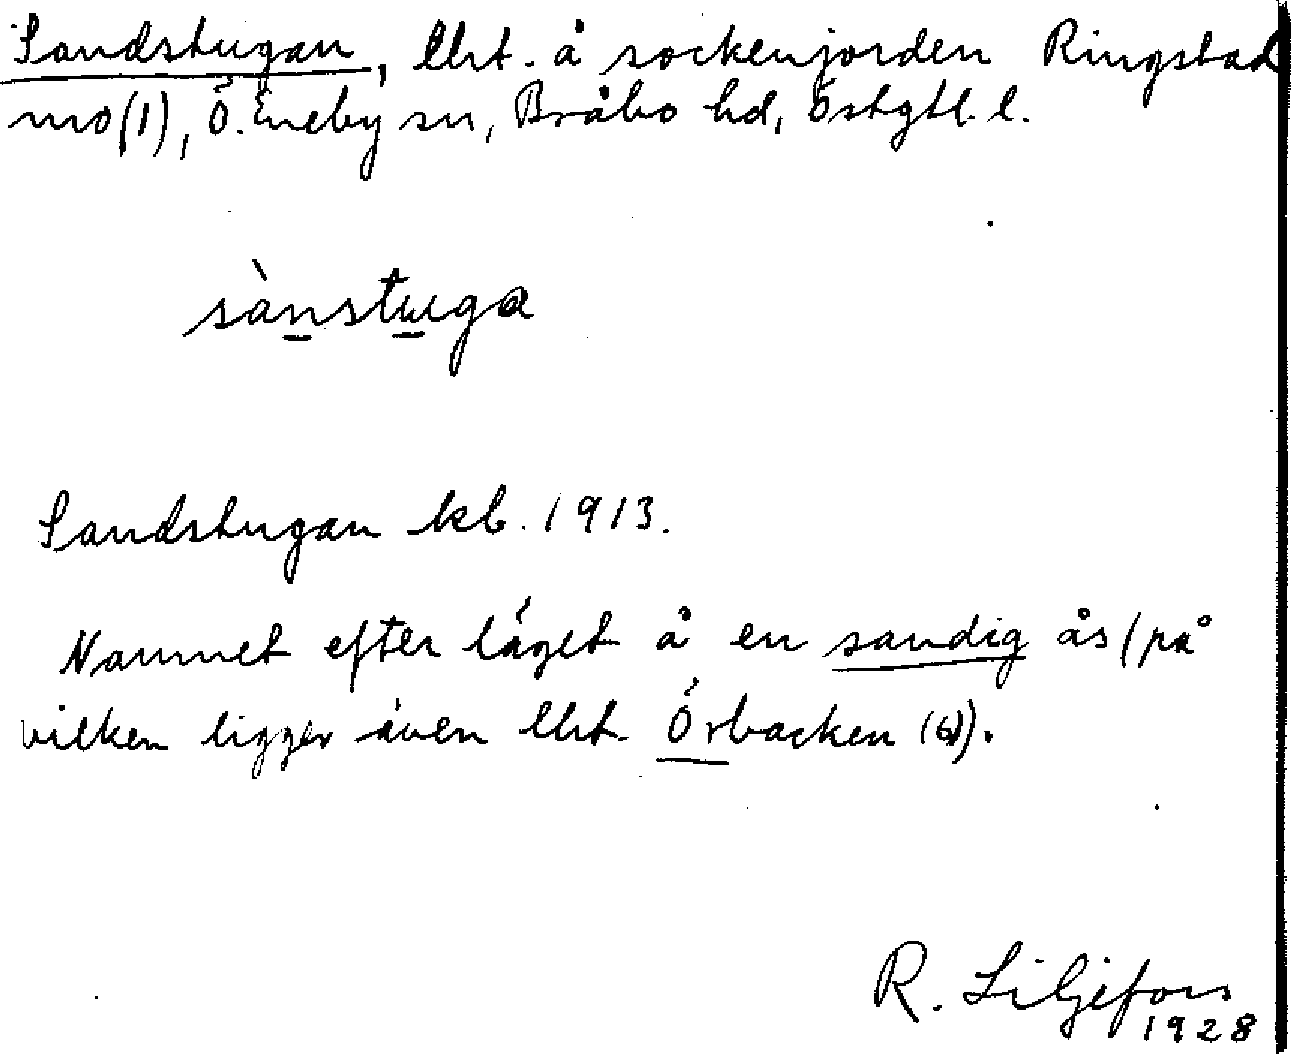 Sandstugan, lht. å sockenjorden Ringstad
mo (1), Ö. Eneby sn, Bråbo hd, Östgtl. l.
sànstuga
Sandstugan kb. 1913.
Namnet efter läget å en sandig ås (på
vilken ligger även lht. Örbacken (6)).
R. Liljefors
1928